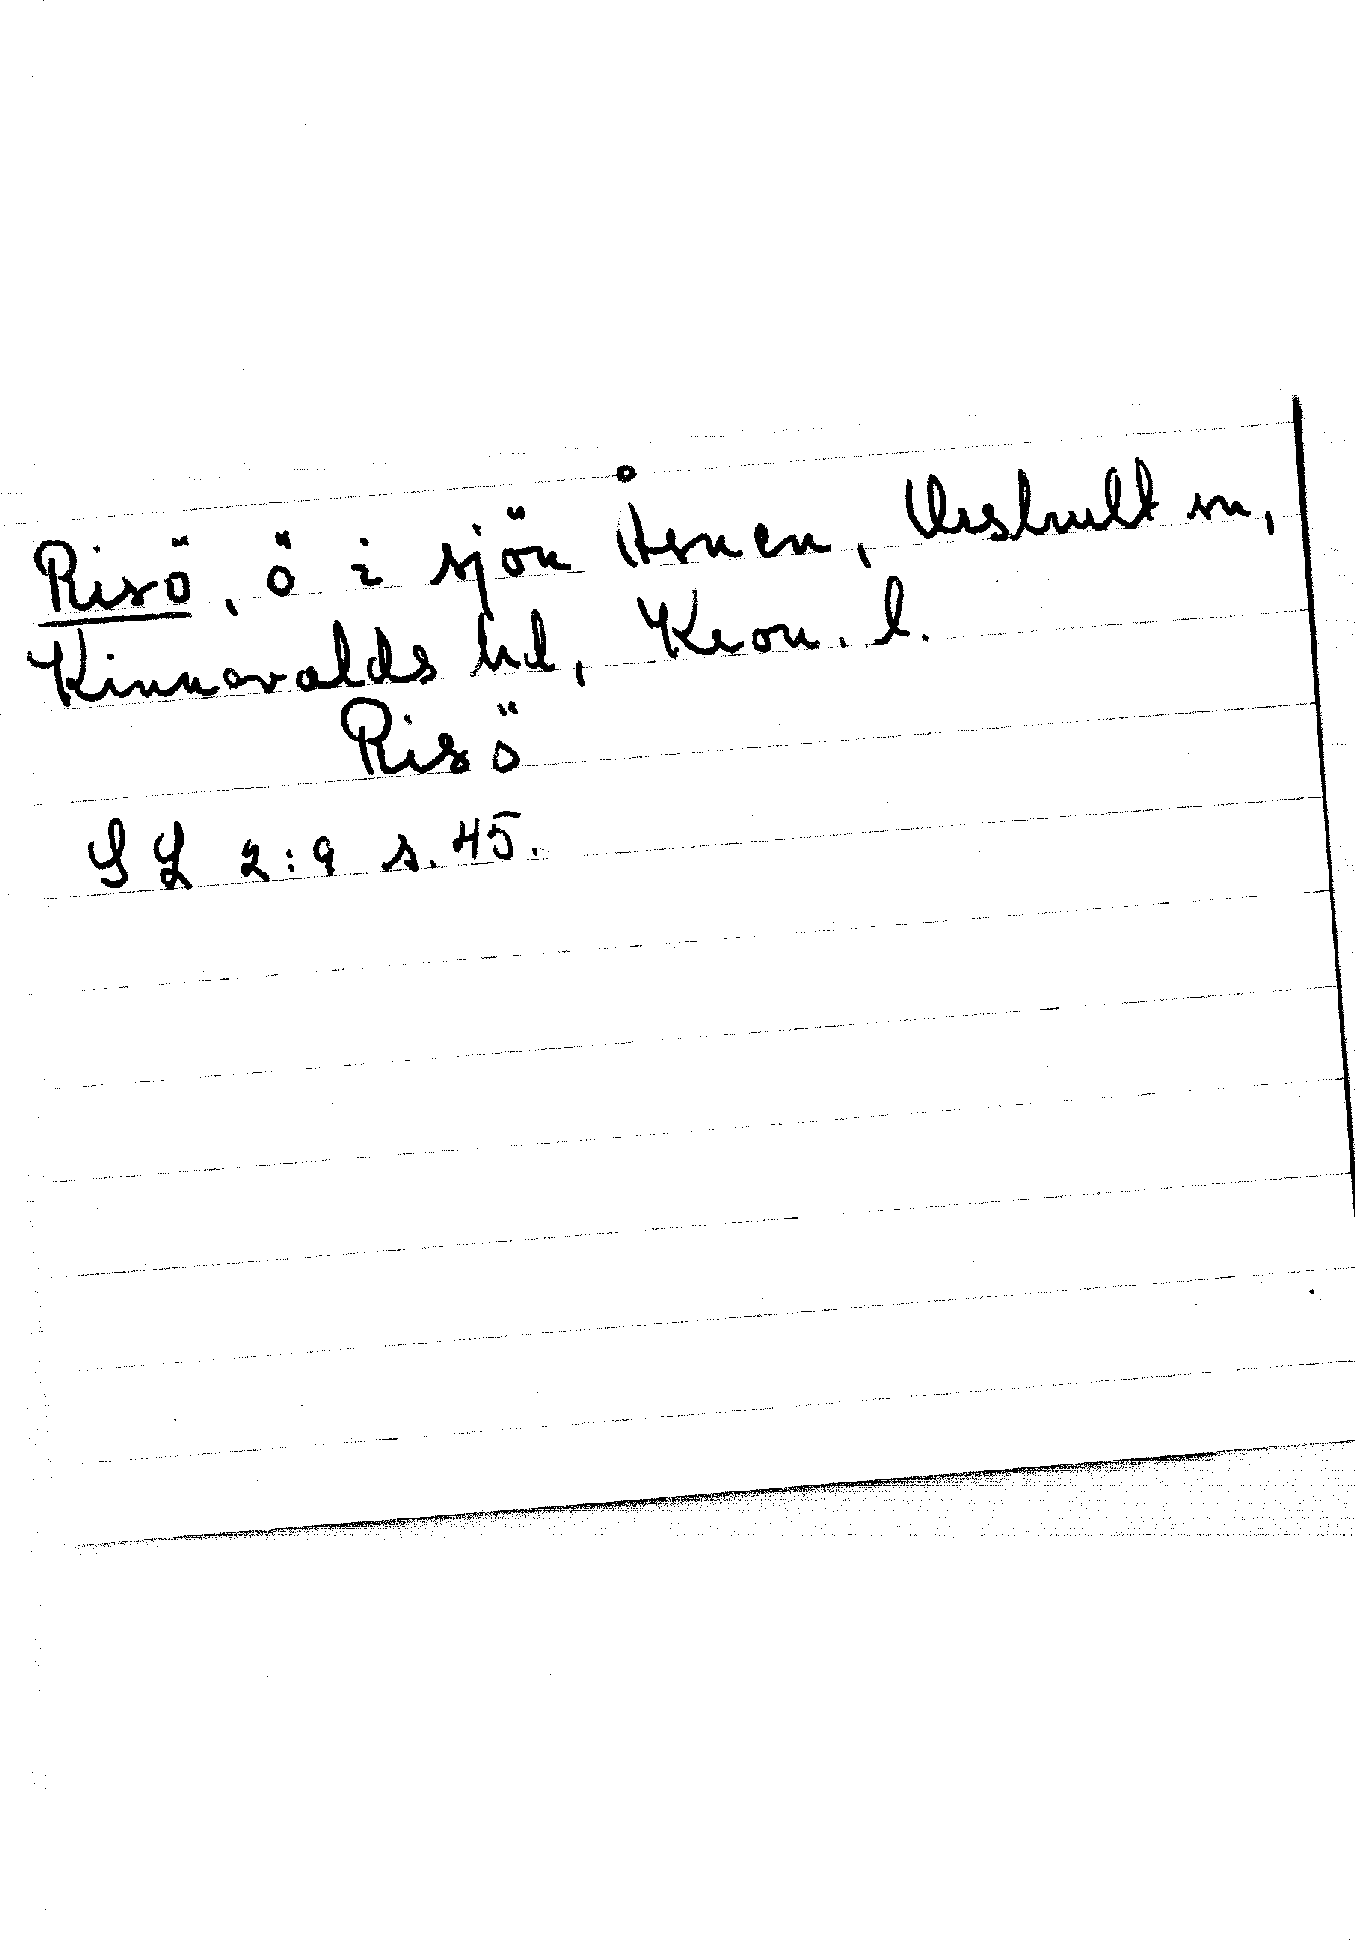 Risö, ö i sjön Åsnen, Urshult sn,
Kinnevalds hd, Kron. l.
Risö
SL 2:9 s. 45.